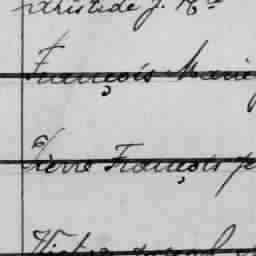 Aristide J. Me
François Marie
Pierre François
Victor